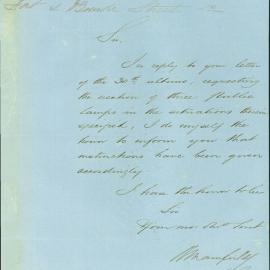 Street
Sir,
In reply to your letter
of the 30th ultimo, requesting
the erection of three Public
Lamps in the situations therein
specified, I do myself the
honor to inform you that
instructions have been given
accordingly
I have the honor to be
Sir
Your mo. Obt. Servt